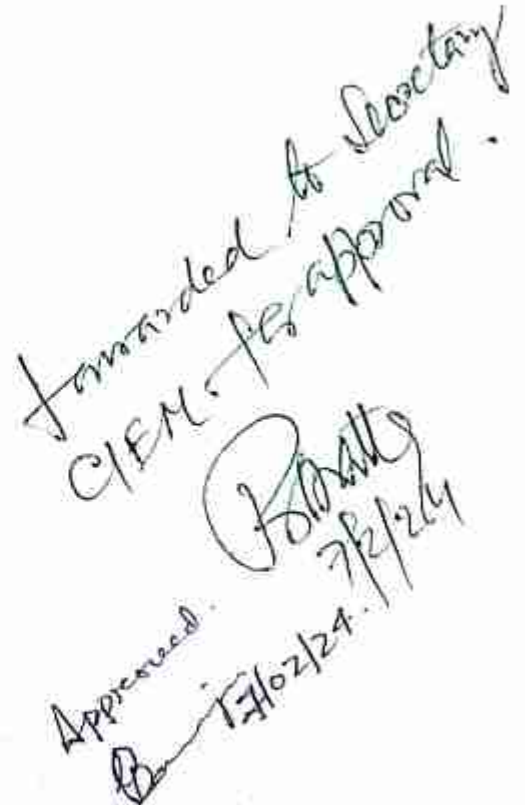 Forwarded to Secretary
CIEM for approval.
7/2/24
Approved.
7/02/24.